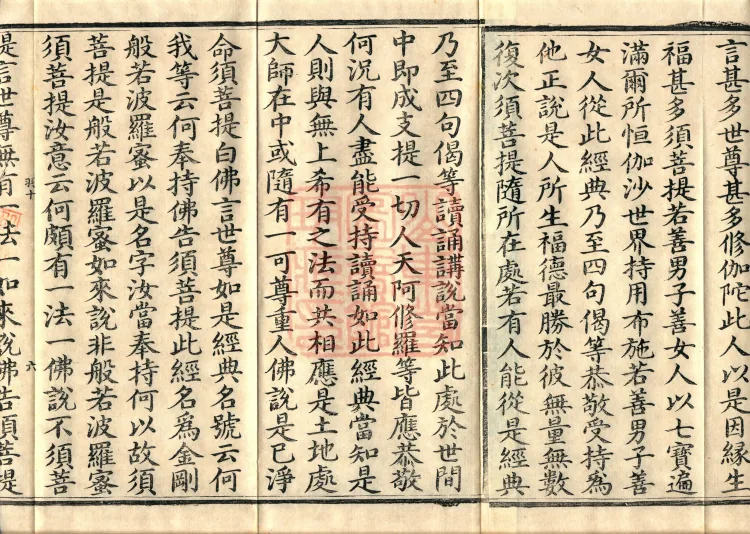 言甚多世尊甚多修伽陀此人以是因緣生
福甚多須菩提若善男子善女人以七寶遍
滿爾所恒伽沙世界持用布施若善男子善
女人從此經典乃至四句偈等恭敬受持為
他正說是人所生福德最勝於彼無量無數
復次須菩提隨所在處若有人能從是經典
乃至四句偈等讀誦講說當知此處於世間
中即成支提一切人天阿修羅等皆應恭敬
何況有人盡能受持讀誦如此經典當知是
人則與無上希有之法而共相應是土地處
大師在中或隨有一可尊重人佛說是已淨
命須菩提白佛言世尊如是經典名號云何
我等云何奉持佛告須菩提此經名為金剛
般若波羅蜜以是名字汝當奉持何以故須
菩提是般若波羅蜜如來說非般若波羅蜜
須菩提汝意云何頗有一法一佛說不須菩
羽十
六
提言世尊無有一法一如來說佛告須菩提